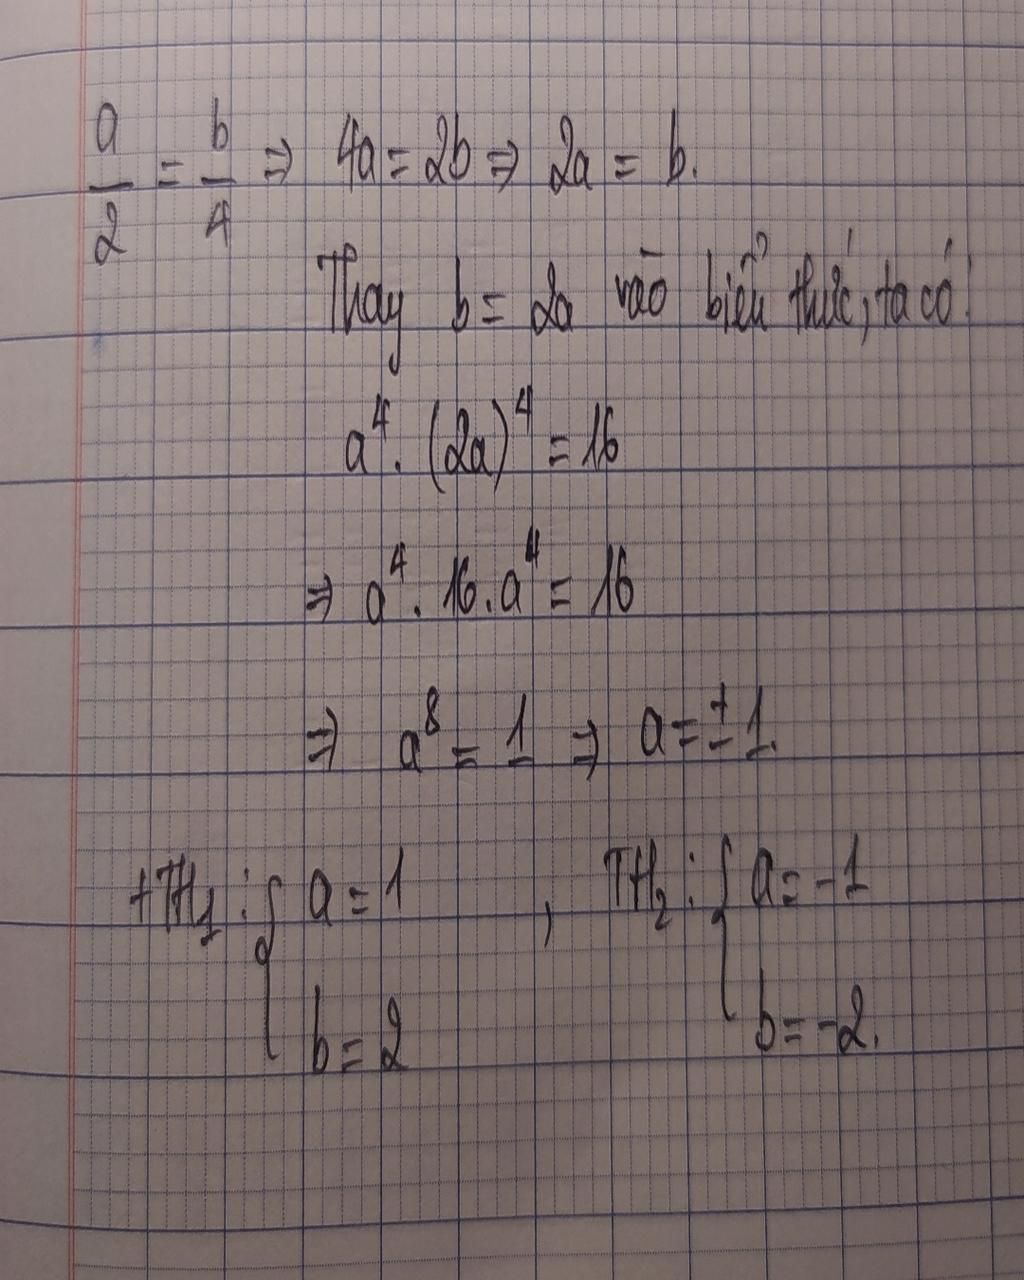 a/2 = b/4 ⇒ 4a = 2b ⇒ 2a = b.
Thay b = 2a vào biểu thức, ta có:
a⁴ . (2a)⁴ = 16
⇒ a⁴ . 16 . a⁴ = 16
⇒ a⁸ = 1 ⇒ a = ±1.
+TH₁ : { a = 1 , TH₂ : { a = -1
b = 2 b = -2.